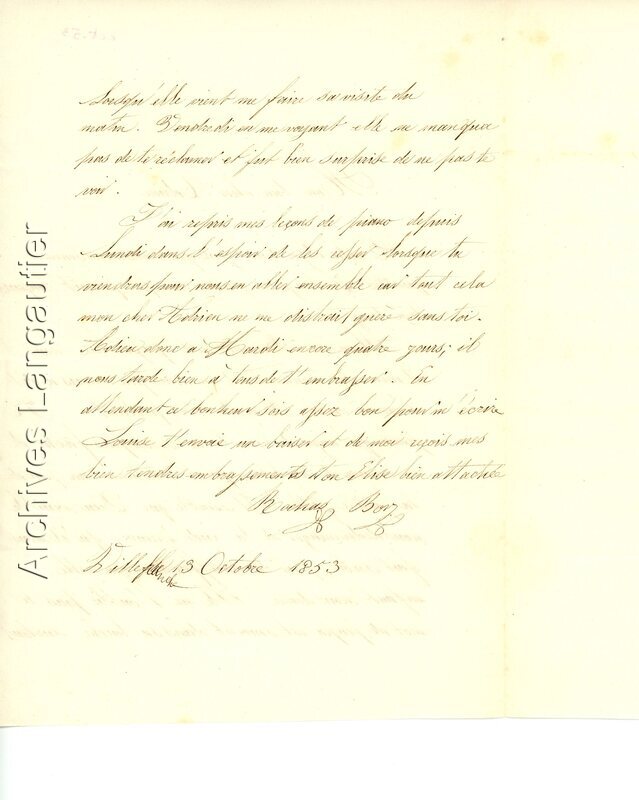 Lorsqu'elle vient me faire sa visite du
matin. Vendredi en me voyant elle ne manqua
pas de te réclamer et fut bien surprise de ne pas te
voir.
J'ai repris mes leçons de piano depuis
Lundi dans l'espoir de les cesser lorsque tu
viendras pour nous en aller ensemble car tout cela
mon cher Adrien ne me distrait guère sans toi.
Adieu donc à Mardi encore quatre jours; il
nous tarde bien à tous de t'embrasser. En
attendant ce bonheur sois assez bon pour m'écrire
Louise t'envoie un baiser et de moi reçois mes
bien tendres embrassements ton Elise bien attachée
Rochas Bory
Villefranche 13 Octobre 1853
Archives Langautier